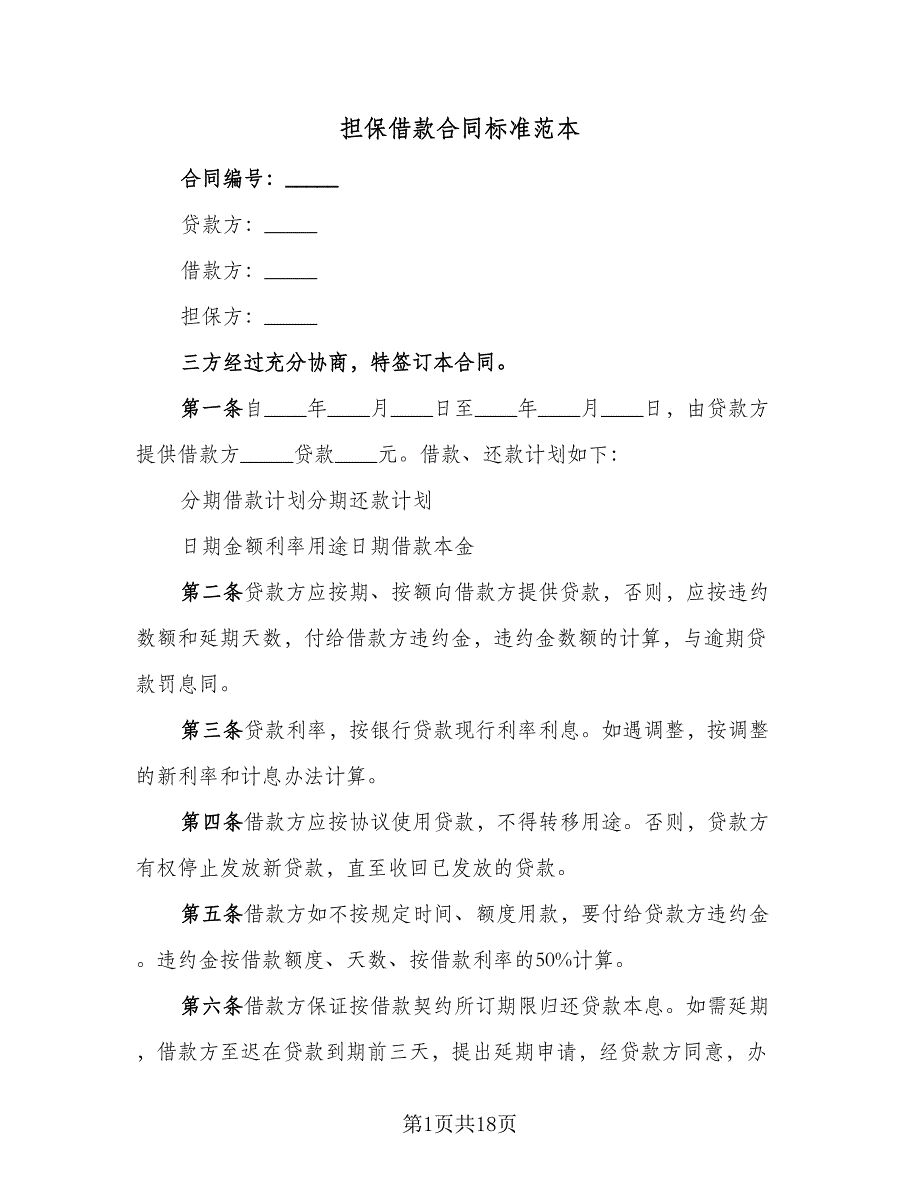 担保借款合同标准范本
合同编号：_____
贷款方：_____
借款方：_____
担保方：_____
三方经过充分协商，特签订本合同。
第一条自____年____月____日至____年____月____日，由贷款方
提供借款方_____贷款____元。借款、还款计划如下：
分期借款计划分期还款计划
日期金额利率用途日期借款本金
第二条贷款方应按期、按额向借款方提供贷款，否则，应按违约
数额和延期天数，付给借款方违约金，违约金数额的计算，与逾期贷
款罚息同。
第三条贷款利率，按银行贷款现行利率利息。如遇调整，按调整
的新利率和计息办法计算。
第四条借款方应按协议使用贷款，不得转移用途。否则，贷款方
有权停止发放新贷款，直至收回已发放的贷款。
第五条借款方如不按规定时间、额度用款，要付给贷款方违约金
。违约金按借款额度、天数、按借款利率的50%计算。
第六条借款方保证按借款契约所订期限归还贷款本息。如需延期
，借款方至迟在贷款到期前三天，提出延期申请，经贷款方同意，办
第1页共18页